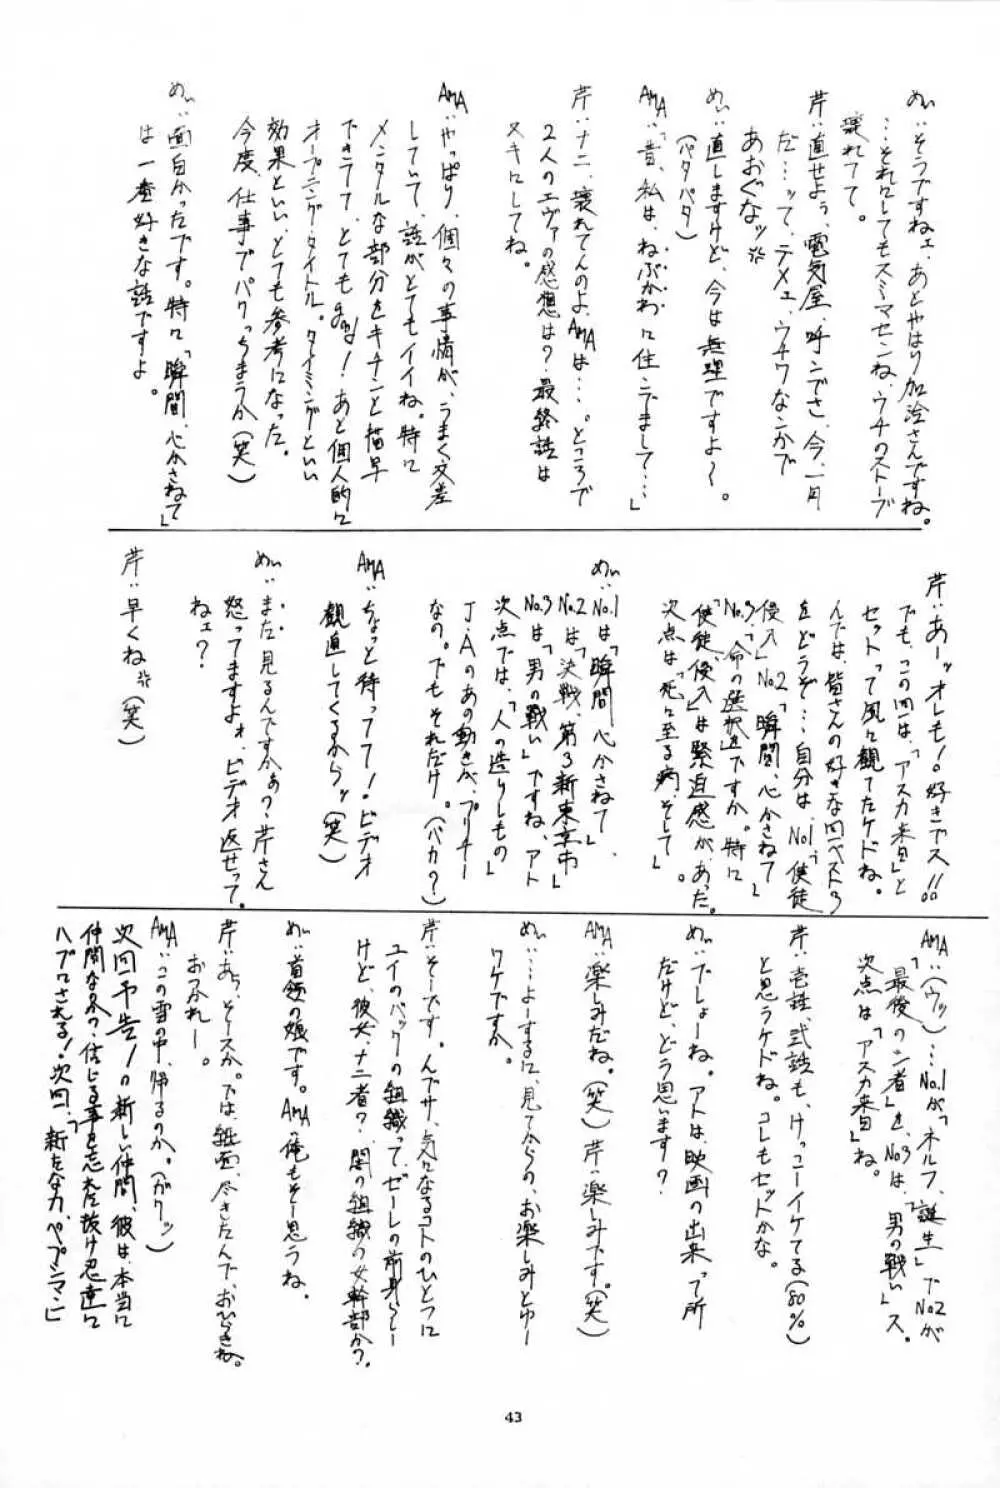 めぃ:そうですねェ、あとやはり加治さんですね。
…それにしてもスミマセンね、ウチのストーブ
壊れてて。
芹:直せよぅ、電気屋、呼ンでさ、今、一月
だ…ッて、テメェ、ウチワなんかで
あおぐなッ
めぃ:直しますけど、今は無理ですよ〜。
(パタパタ)
AMA:「昔、私は、ねぶかわに住ンでまして…」
芹:ナニ、壊れてんのよ、AMAは…。ところで
2人のエヴァの感想は?最終話は
ヌキにしてね。
AMA:やっぱり、個々の事情が、うまく交差
していて、話がとてもイイね。特に
メンタルな部分をキチンと描写
できてて、とてもgood!あと個人的に
オープニング・タイトル。タイミングといい
効果といい、とても参考になった。
今度、仕事でパクっちまうか(笑)
めぃ:面白かったです。特に「瞬間、心かさねて」
は一番好きな話ですよ。
芹:あーッオレも!好きでス!!
でも、この回は、「アスカ来日」と
セットって風に観てたケドね。
んでは、皆さんの好きな回ベスト3
をどうぞ…自分は、No.1「使徒
侵入」No.2「瞬間、心かさねて」
No.3「命の選択を」ですか。特に
「使徒、侵入」は緊迫感が、あった。
次点は「死に至る病、そして」。
めぃ:No.1は「瞬間、心かさねて」、
No.2は「決戦、第3新東京市」
No.3は「男の戦い」ですね、アト
次点では、「人の造りしもの」
J・Aのあの動きが、プリチー
なの。でもそれだけ。(バカ?)
AMA:ちょっと待ってて!ビデオ
観直してくるからッ(笑)
めぃ:まだ見るんですかぁ?芹さん
怒ってますよォ、ビデオ返せって。
ねェ?
芹:早くね(笑)
AMA:(ウッ)…No.1が「ネルフ、誕生」でNo.2が
「最後のシ者」を、No.3は、「男の戦い」ス。
次点は「アスカ来日」ね。
芹:壱話、弐話も、けっこーイケてる(80%)
と思うケドね。コレもセットかな。
めぃ:でしょーね。アトは、映画の出来って所
だけど、どう思います?
AMA:楽しみだね。(笑)芹:楽しみです。(笑)
めぃ:…よーするに、見てからの、お楽しみとゆー
ワケですか。
芹:そーです。んでサ、気になるコトのひとつに
ユイのバックの組織って、ゼーレの前身らしー
けど、彼女、ナニ者?闇の組織の女幹部か?
めぃ:首領の娘です。AMA:俺もそー思うね。
芹:あら、そースか。では、紙面、尽きたんで、おひらきね。
おつかれー。
AMA:この雪の中、帰るのか。(ガクッ)
次回予告!の新しい仲間、彼は、本当に
仲間なのか、信じる事を忘れた抜け忍達に
ハブロされる!次回、「新たな力、ペプシマン」
43